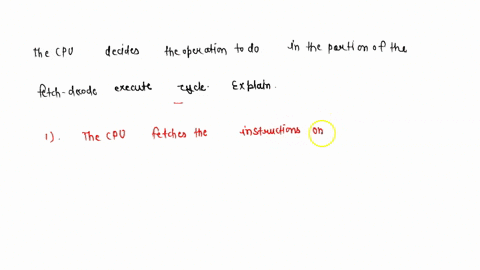 The CPU decides the operation to do in the partion of the
fetch-decode execute cycle. Explain.
1). The CPU fetches the instructions on